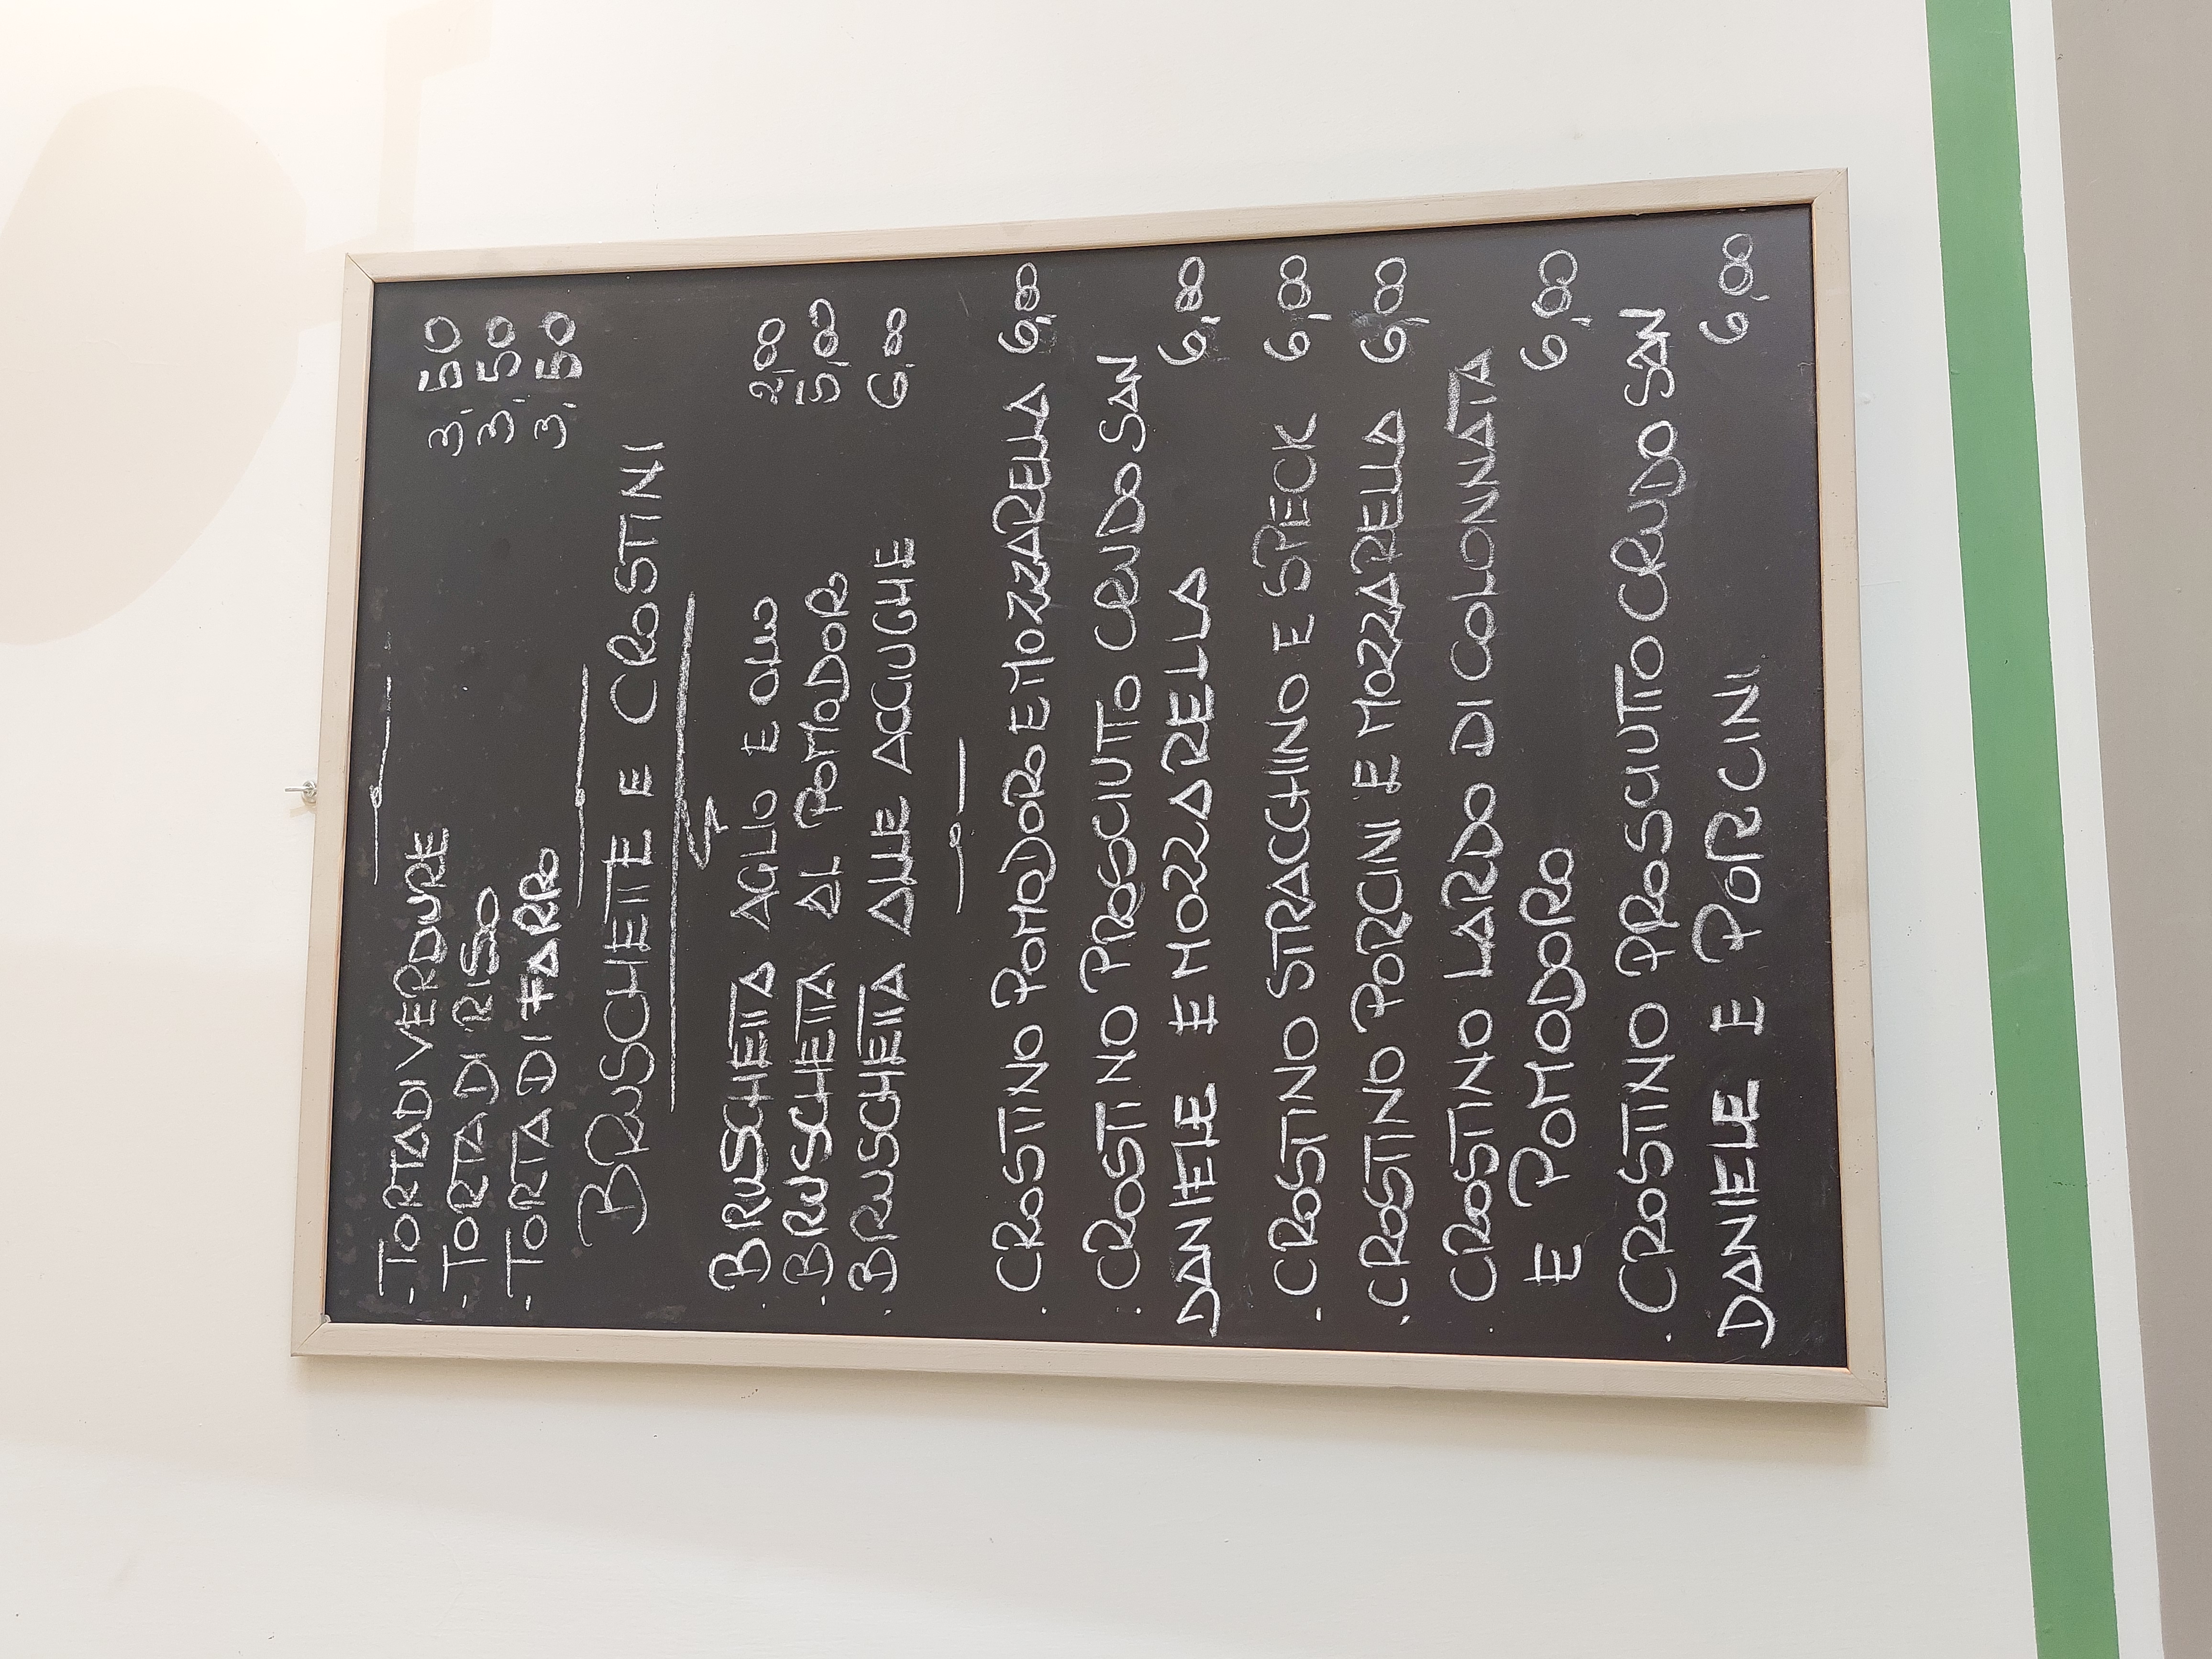 - TORTA DI VERDURE 3,50
- TORTA DI RISO 3,50
- TORTA DI FARRO 3,50
BRUSCHETTE E CROSTINI
. BRUSCHETTA AGLIO E OLIO 2,00
. BRUSCHETTA AL POMODORO 5,00
. BRUSCHETTA ALLE ACCIUGHE 6,00
. CROSTINO POMODORO E MOZZARELLA 6,00
. CROSTINO PROSCIUTTO CRUDO SAN
DANIELE E MOZZARELLA 6,00
- CROSTINO STRACCHINO E SPECK 6,00
. CROSTINO PORCINI E MOZZARELLA 6,00
. CROSTINO LARDO DI COLONNATA
E POMODORO 6,00
. CROSTINO PROSCIUTTO CRUDO SAN
DANIELE E PORCINI 6,00